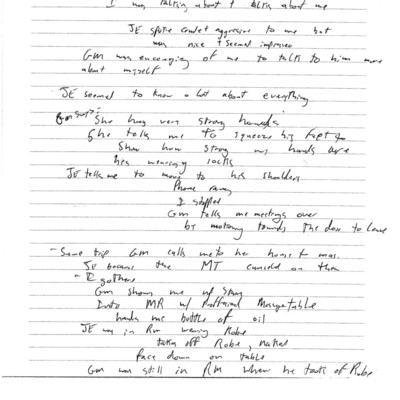 I was talking about + about me
JE spoke aggressive to me but
was nice + seemed impressed
GM was encouraging of me to talk to him more
about myself
JE seemed to know a lot about everything
GM says: "She has very strong hands"
She tells me to squeeze his feet to
show how strong my hands are
he's wearing socks
JE tells me to move to his shoulders
Phone rang
I stopped
GM tells me meetings over
by motioning towards the door to leave
- Same trip GM calls me to her house + mas.
JE because the MT canceled on them
- I go there
GM shows me up stairs
Into MR w/ Massage table
hands me bottle of oil
JE was in Rm wearing Robe
takes off Robe, naked
face down on table
GM was still in RM when he took off Robe